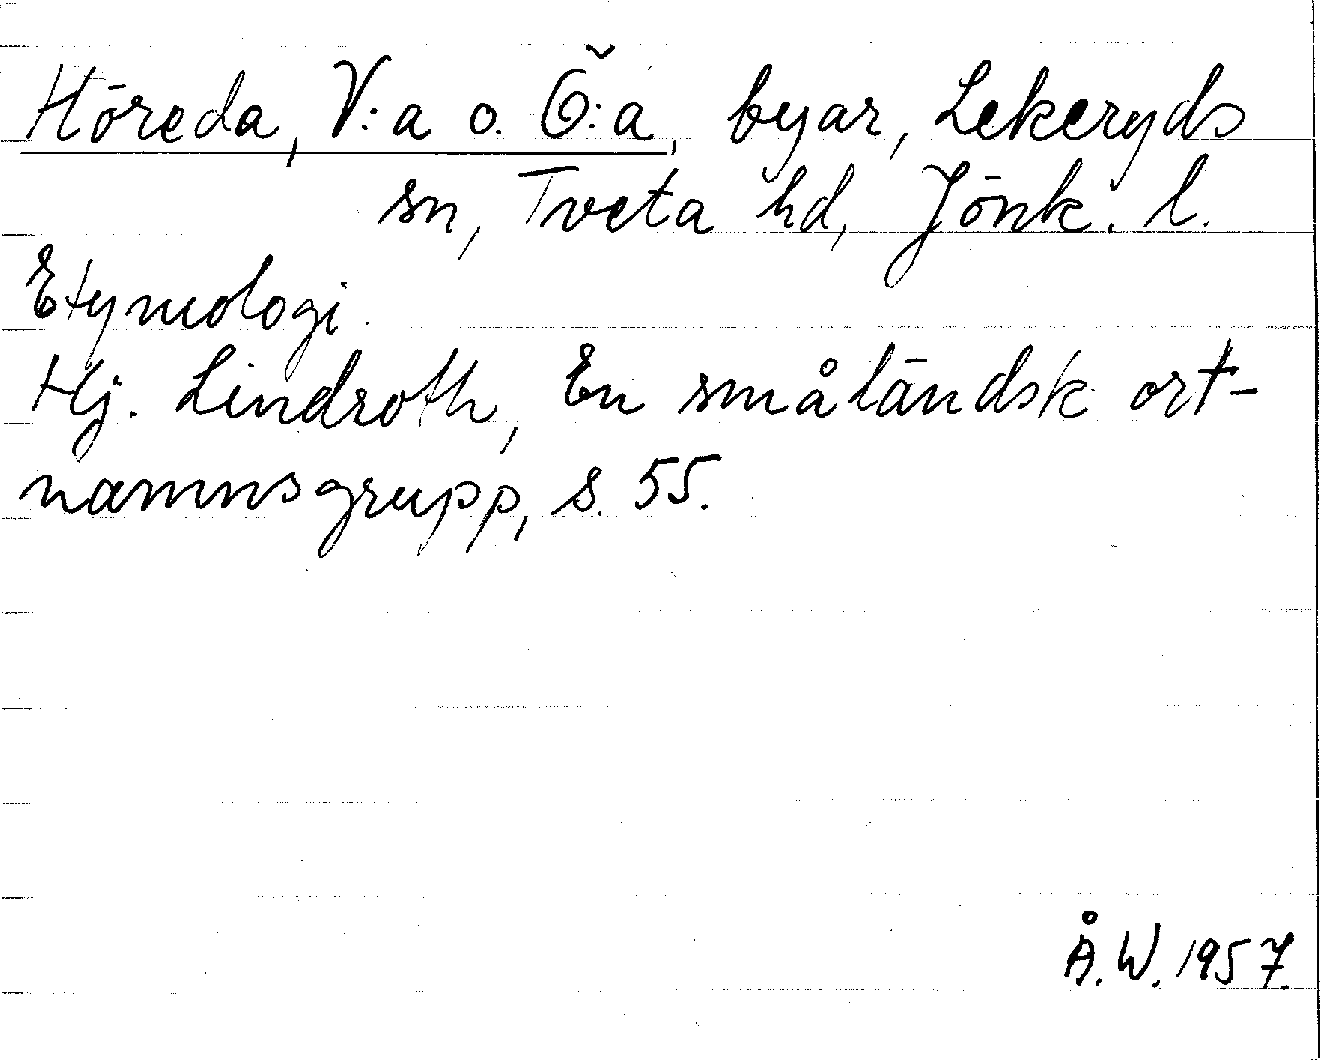 Höreda, V:a o. Ö:a, byar, Lekeryds
sn, Tveta hd, Jönk. l.
Etymologi.
Hj. Lindroth, En småländsk ort-
namnsgrupp, s. 55.
Å.W. 1957.